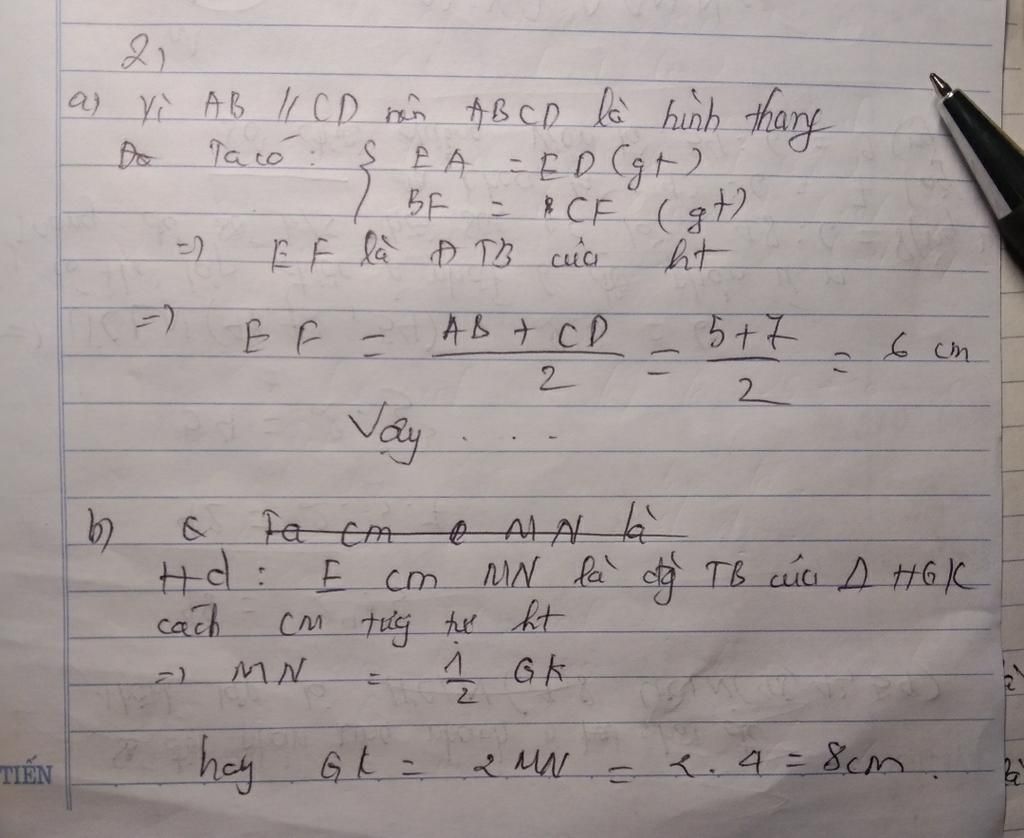 2)
a) Vì AB // CD nên ABCD là hình thang
Do Ta có : { EA = ED (gt)
BF = CF (gt)
=> EF là Đ TB của ht
=> EF = AB + CD / 2 = 5+7 / 2 = 6 cm
Vậy . . . .
b) Ta cm MN là
Hd : E cm MN là đg TB của Δ HGK
cách cm tứg tự ht
=> MN = 1/2 GK
hay GK = 2 MN = 2 . 4 = 8cm .
TIẾN
là
là